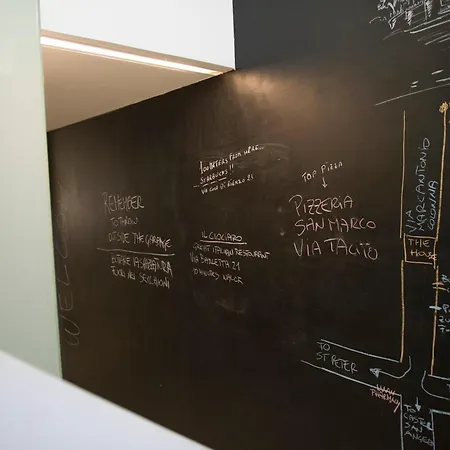 WELCOME
REMEMBER
TO THROW
OUTSIDE THE GARBAGE
BUTTARE LA SPAZZATURA
FUORI NEI SECCHIONI
100 METERS FROM HERE...
STARBUCKS!!
VIA COLA DI RIENZO 21
IL CIOCIARO
GREAT ITALIAN RESTAURANT
VIA BARLETTA 21
10 MINUTES WALK
TOP PIZZA
PIZZERIA
SAN MARCO
VIA TACITO
VIA
MARCANTONIO
COLONNA
THE
HOUSE
TO
ST PETER
PHARMACY
TO
CASTEL
SAN
ANGELO